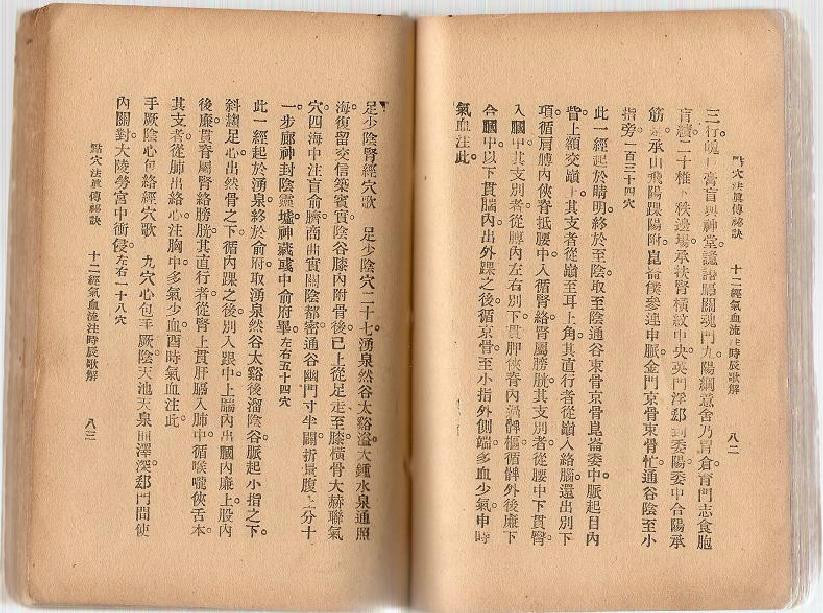 點穴法眞傳秘訣 十二經氣血流注時辰歌解 八二
三行魄戶膏肓與神堂。譩譆膈關魂門九。陽綱意舍乃胃倉。肓門志室胞
肓續。二十椎下秩邊場。承扶臀橫紋中央。殷門浮郄到委陽。委中合陽承
筋是。承山飛陽踝陽附。崑崙僕參連申脈。金門京骨束骨忙。通谷陰至小
指旁。一百三十四穴
此一經起於睛明。終於至陰。取至陰通谷束骨京骨崑崙委中。脈起目內
眥。上額交巔上。其支者從巔至耳上角。其直行者從巔入絡腦。還出別下
項。循肩膊內。俠脊抵腰中。入循膂。絡腎屬膀胱。其支別者。從腰中下貫臀。
入膕中。其支別者。從膊內左右。別下貫胛。俠脊內過髀樞。循髀外後廉下
合膕中。以下貫腨內。出外踝之後。循京骨至小指外側端。多血少氣。申時
氣血注此。
足少陰腎經穴歌 足少陰穴二十七。湧泉然谷太谿溢。大鍾水泉通照
海。復留交信築賓實。陰谷膝內附骨後。已上從足走至膝。橫骨大赫聯氣
穴。四滿中注肓俞臍。商曲石關陰都密。通谷幽門寸半闢。折量腹上分十
一。步廊神封陰靈墟。神藏彧中俞府畢。左右五十四穴
此一經起於湧泉。終於俞府。取湧泉然谷太谿後溜陰谷。脈起小指之下。
斜趨足心。出然骨之下。循內踝之後。別入跟中。上腨內。出膕內廉。上股內
後廉。貫脊屬腎絡膀胱。其直行者。從腎上貫肝膈。入肺中。循喉嚨。俠舌本。
其支者。從肺出絡心。注胸中。多氣少血。酉時氣血注此。
手厥陰心包絡經穴歌 九穴心包手厥陰。天池天泉曲澤深。郄門間使
內關對。大陵勞宮中衝侵。左右一十八穴
點穴法眞傳秘訣 十二經氣血流注時辰歌解 八三